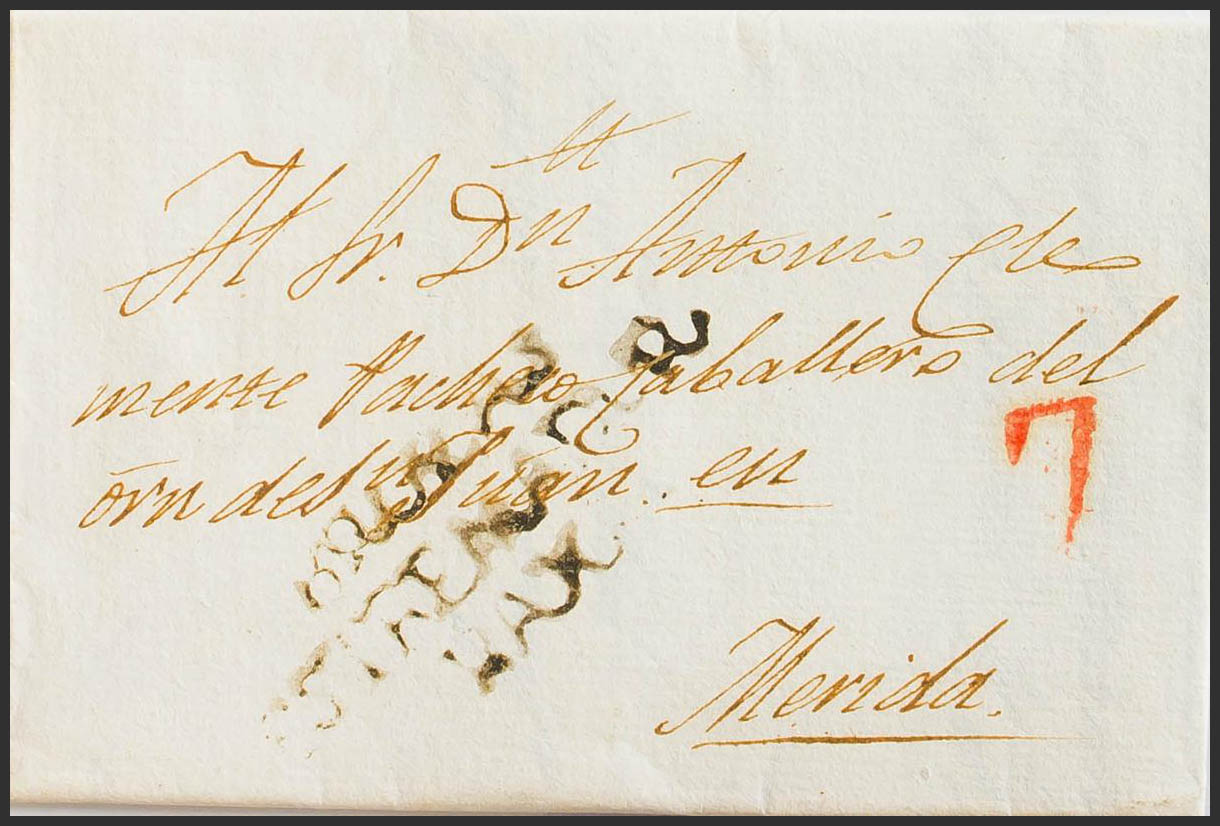 Al Sr. Dn Antonio Cle
mente Pacheco Caballero del
orn de Sn Juan. en
7
Merida.